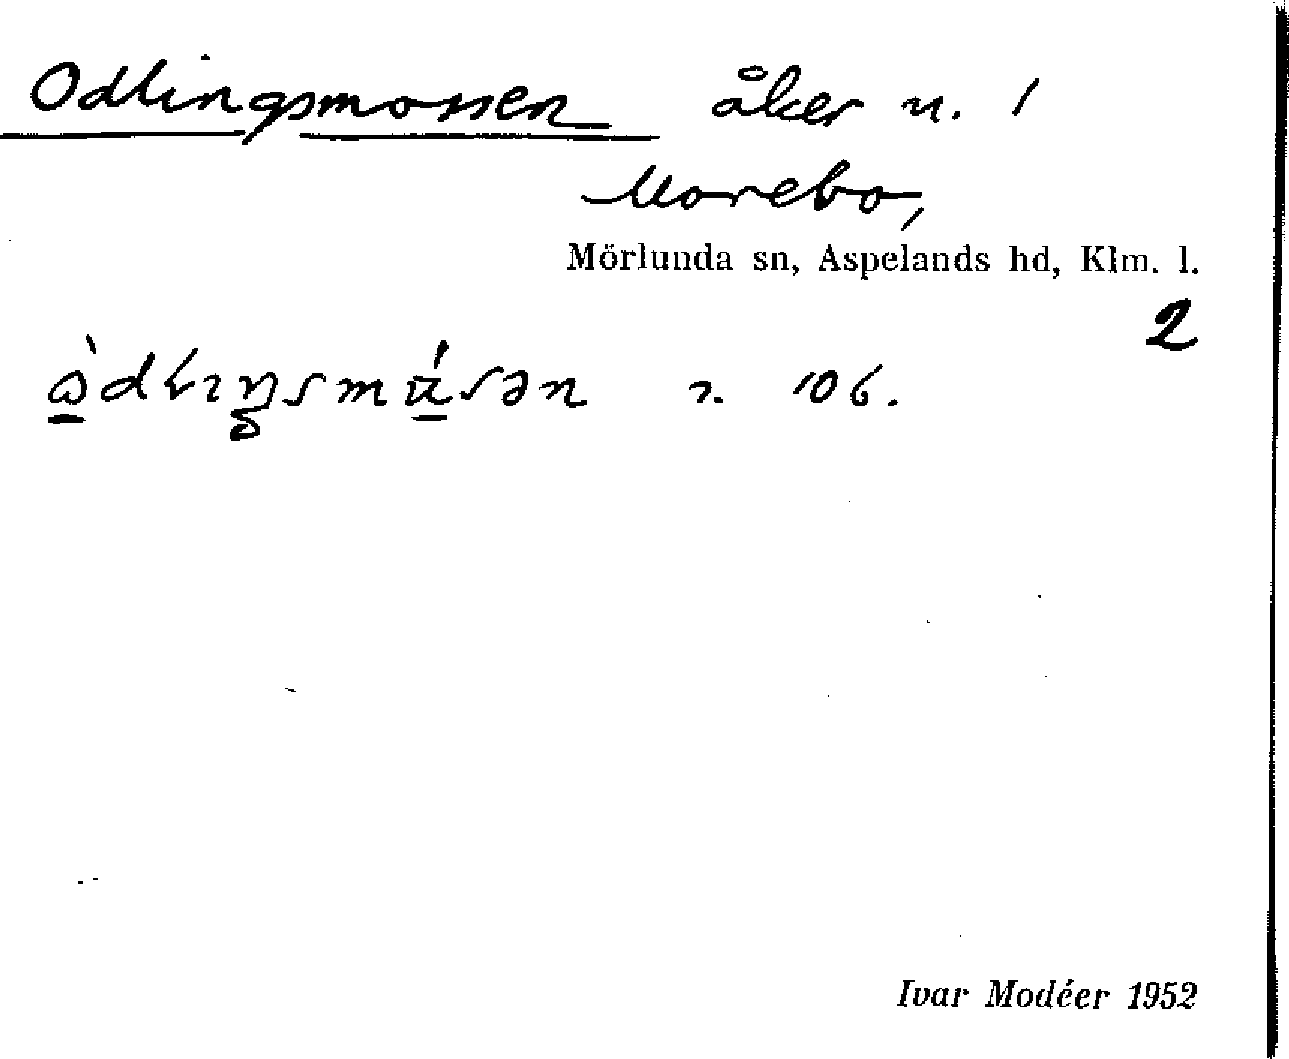 Odlingsmossen åker n. 1
Morebo,
Mörlunda sn, Aspelands hd, Klm. l.
2
106.
Ivar Modéer 1952